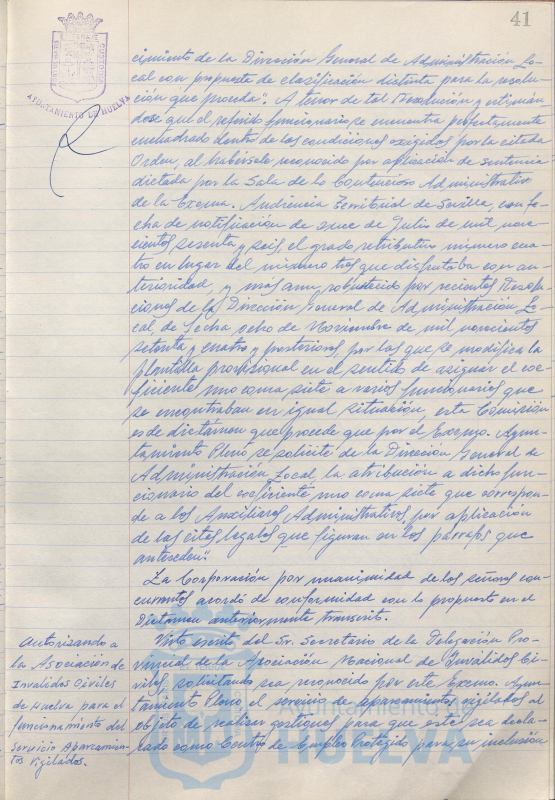 41
AYUNTAMIENTO DE HUELVA
cimiento de la Dirección General de Administración Lo-
cal con propuesta de clasificación distinta para la resolu-
ción que proceda". A tenor de tal Resolución y estimán
dose que el referido funcionario se encuentra perfectamente
encuadrado dentro de las condiciones exigidas por la citada
Orden, al habérsele reconocido por aplicación de sentencia
dictada por la Sala de lo Contencioso Administrativo
de la Excma. Audiencia Territorial de Sevilla, con fe-
cha de notificación de once de Julio de mil nove-
cientos sesenta y seis, el grado retributivo número cua-
tro en lugar del número tres que disfrutaba con an-
terioridad, y más aún, robustecido por recientes Resolu-
ciones de la Dirección General de Administración Lo-
cal de fecha ocho de Noviembre de mil novecientos
setenta y cuatro y posteriores, por las que se modifica la
plantilla provisional en el sentido de asignar el coe-
ficiente uno coma siete a varios funcionarios que
se encontraban en igual situación, esta Comisión
es de dictamen que procede que por el Excmo. Ayun-
tamiento Pleno se solicite de la Dirección General de
Administración Local, la atribución a dicho fun-
cionario del coeficiente uno coma siete que correspon-
de a los Auxiliares Administrativos, por aplicación
de las citas legales que figuran en los párrafos que
anteceden".
La Corporación por unanimidad de los señores con-
currentes acordó de conformidad con lo propuesto en el
Dictamen anteriormente transcrito.
Autorizando a
la Asociación de
Inválidos Civiles
de Huelva para el
funcionamiento del
Servicio Aparcamien-
tos Vigilados.
Visto escrito del Sr. Secretario de la Delegación Pro-
vincial de la Asociación Nacional de Inválidos Ci-
viles, solicitando sea reconocido por este Excmo. Ayun-
tamiento Pleno, el servicio de aparcamientos vigilados al
objeto de realizar gestiones para que éste sea decla-
rado como Centro de Empleo Protegido para su inclusión
Ayuntamiento de
HUELVA